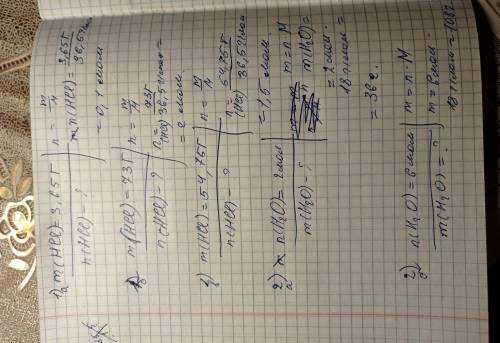 1) a m(HCl)=3,65г | n = m/M
n(HCl) = ? | n(HCl)= 3,65г/36,5г/моль
= 0,1 моль
б m(HCl)=73г | n = m/M
n(HCl) = ? | n(HCl) = 73г/36,5г/моль =
= 2 моль
в) m(HCl) = 54,75г | n = m/M
n(HCl) - ? | n(HCl) = 54,75г/36,5г/моль
= 1,5 моль.
2) а n(H2O)= 2моль | m = n·M
m(H2O) = ? | m(H2O)=
= 2моль·
18г/моль =
= 36г.
2) б n(H2O) = 6моль | m = n·M
m(H2O) = ? | m = 6моль·
18г/моль = 108г